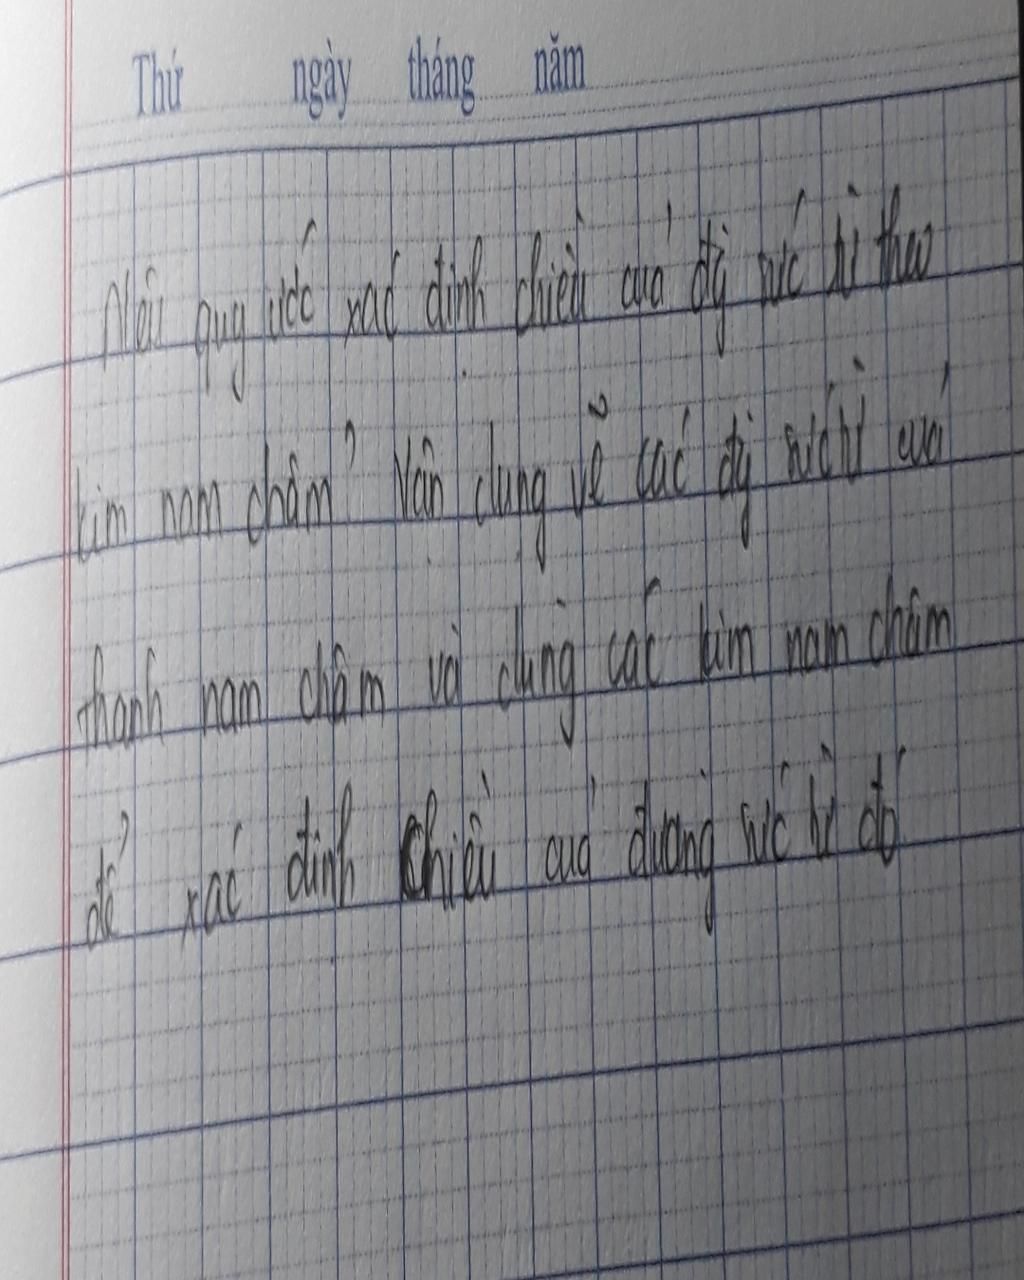 Thứ ngày tháng năm
Nêu quy ước xác định chiều của đg sức từ theo
kim nam châm? Vận dụng vẽ các đg sức từ của
thanh nam châm và dùng các kim nam châm
để xác định chiều của đương sức từ đó